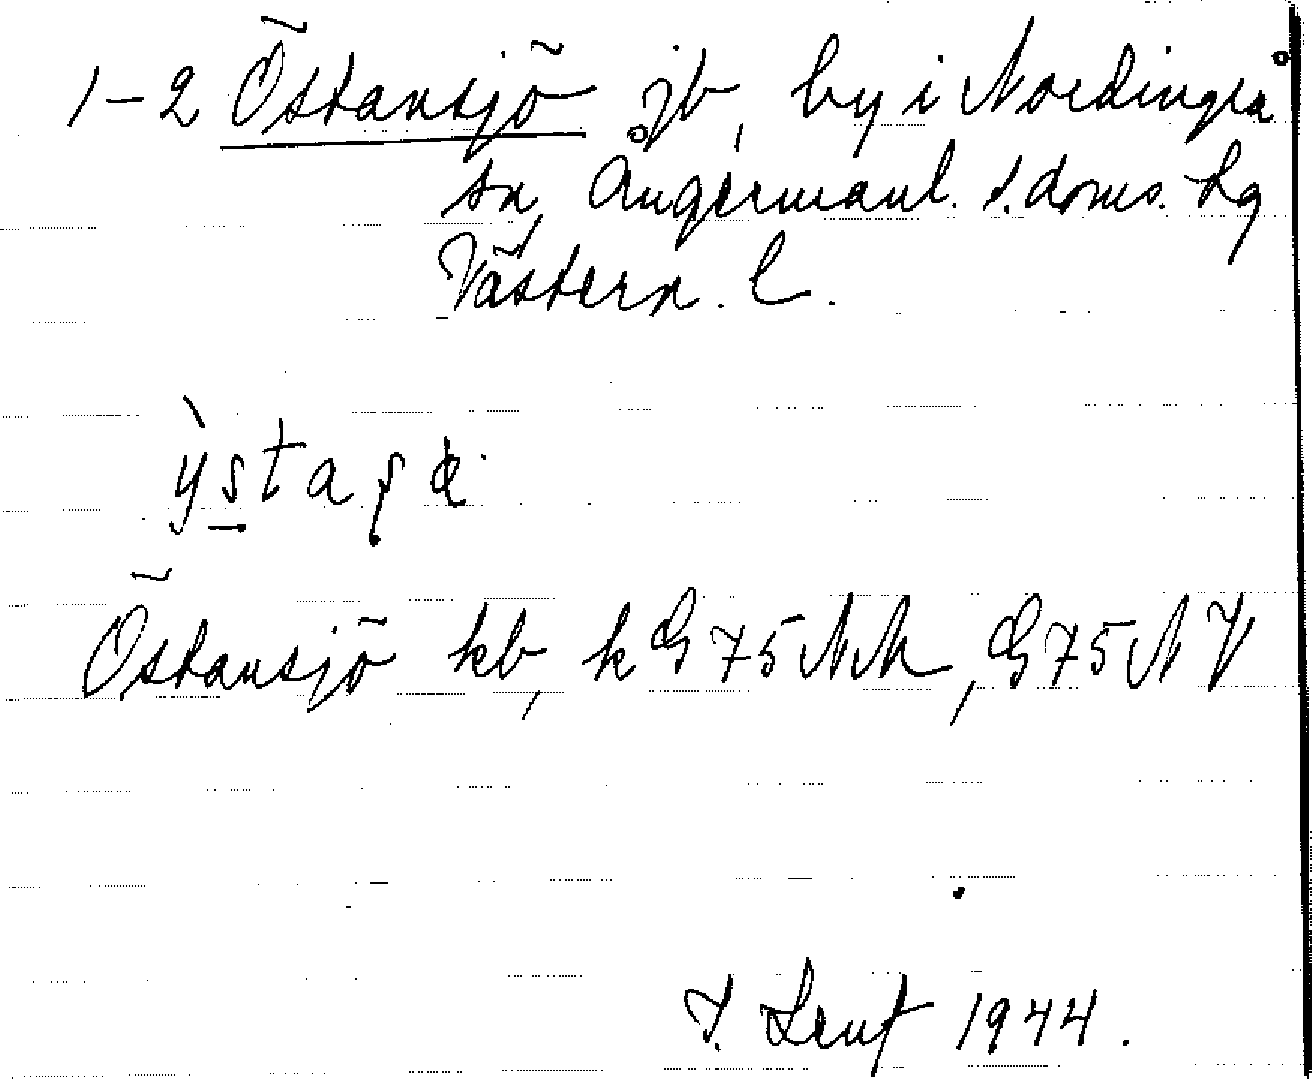 1-2 Östansjö jb, by i Nordingrå
sn, Ångermanl. s. doms. hg
Västern. l.
Östansjö kb, k G 75 NM, G 75 NV
1944.